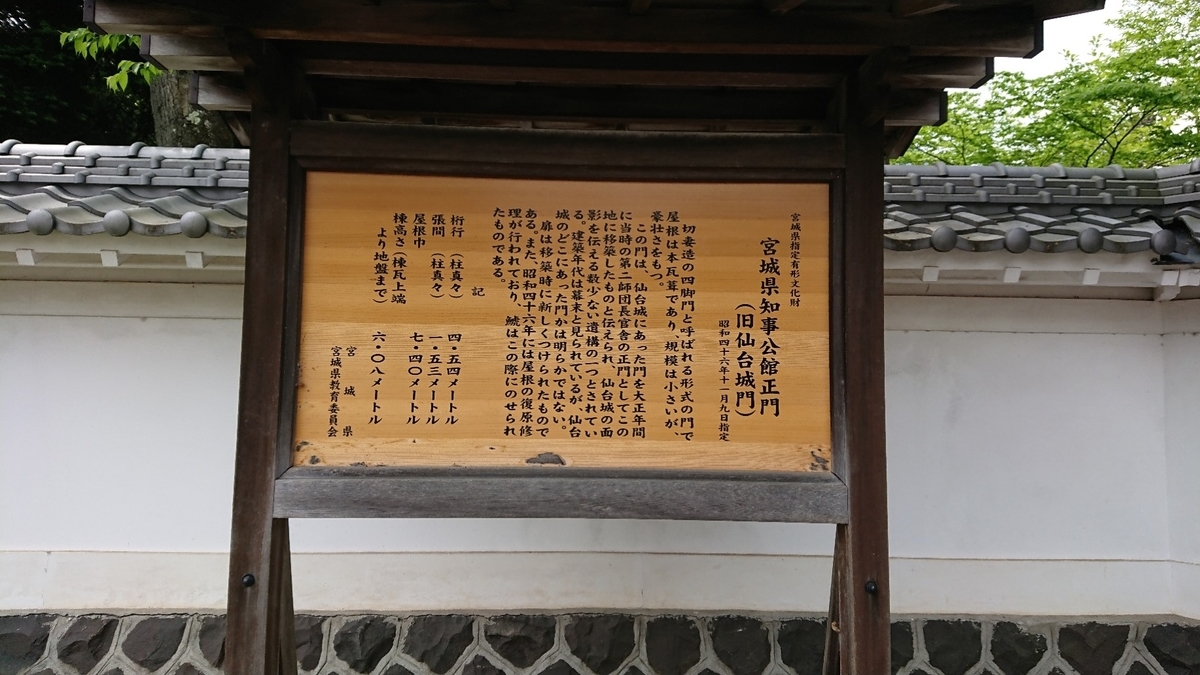 宮城県指定有形文化財
宮城県知事公館正門
(旧仙台城門)
昭和四十六年十一月九日指定
切妻造の四脚門と呼ばれる形式の門で
屋根は本瓦葺であり、規模は小さいが、
豪壮さをもつ。
この門は、仙台城にあった門を大正年間
に当時の第二師団長官舎の正門としてこの
地に移築したものと伝えられ、仙台城の面
影を伝える数少ない遺構の一つとされてい
る。建築年代は幕末と見られているが、仙台
城のどこにあった門かは明らかではない。
扉は移築時に新しくつけられたもので
ある。また、昭和四十六年には屋根の復原修
理が行われており、鯱はこの際にのせられ
たものである。
記
桁行 (柱真々) 四・五四メートル
張間 (柱真々) 一・五三メートル
屋根巾 七・四〇メートル
棟高さ(棟瓦上端
より地盤まで) 六・〇八メートル
宮城県
宮城県教育委員会